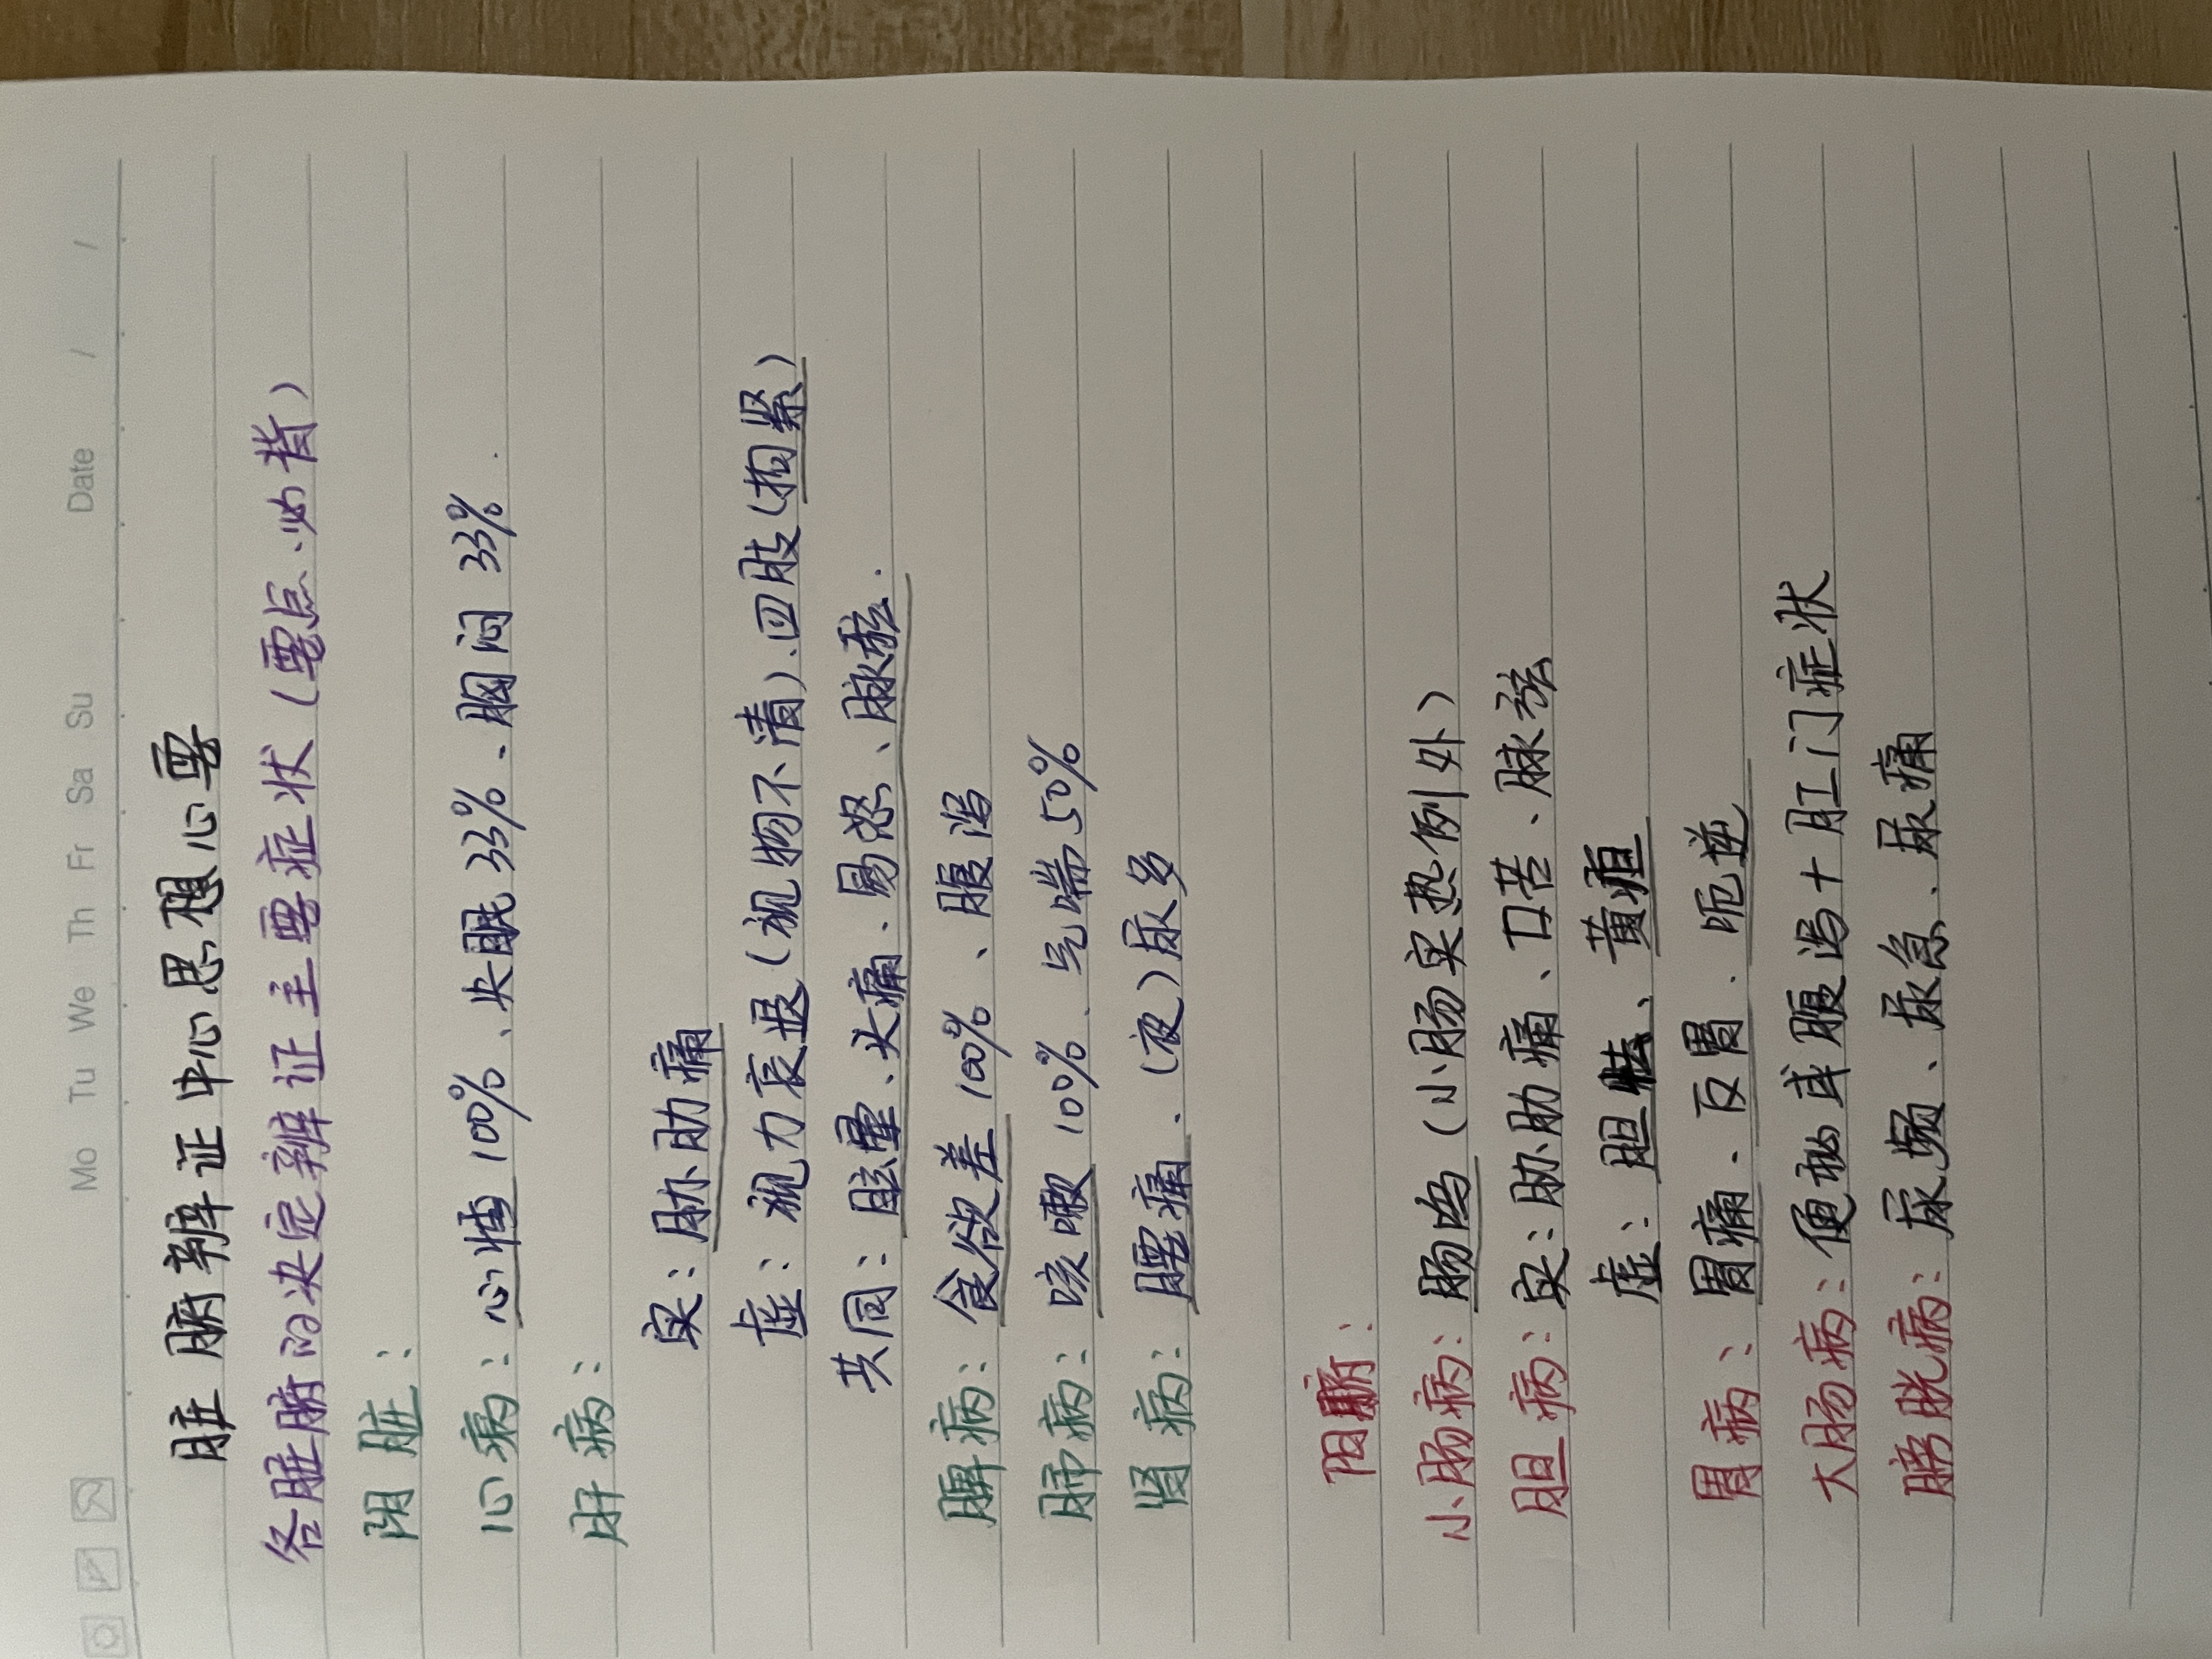 Mo Tu We Th Fr Sa Su Date / /
脏腑辨证中心思想心要
各脏腑的决定辨证主要症状（要点、必背）
阴脏：
心病：心悸100%、失眠33%、胸闷33%
肝病：
实：胁肋痛
虚：视力衰退（视物不清）、四肢（拘紧）
共同：眩晕、头痛、易怒、脉弦.
脾病：食欲差100%、腹泻
肺病：咳嗽100%、气喘50%
肾病：腰痛、（夜）尿多
阳腑：
小肠病：肠鸣（小肠实热例外）
胆病：实：胁肋痛、口苦、脉弦
虚：胆怯、黄疸
胃病：胃痛、反胃、呃逆
大肠病：便秘或腹泻＋肛门症状
膀胱病：尿频、尿急、尿痛